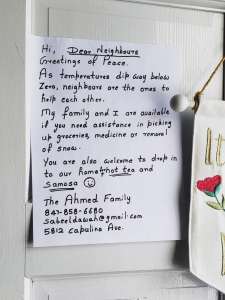 Hi, Dear Neighbours
Greetings of Peace.
As temperatures dip way below
Zero, neighbours are the ones to
help each other.
My family and I are available
if you need assistance in picking
up groceries, medicine or removal
of snow.
You are also welcome to drop in
to our home for hot tea and
Samosa
The Ahmed Family
847-858-6680
sabeeldawah@gmail.com
5812 Capulina Ave.